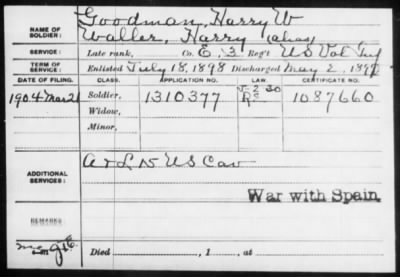 NAME OF SOLDIER: Goodman, Harry W
Waller, Harry (alias)
SERVICE: Late rank, Co. E, 3 Reg't US Vol Inf
TERM OF SERVICE: Enlisted July 18, 1898 Discharged May 2, 1899
DATE OF FILING. CLASS. APPLICATION NO. LAW. CERTIFICATE NO.
1904 Mar 21 Soldier, 1310377 J-2-30 1087660
Widow,
Minor,
ADDITIONAL SERVICES: A & L 15 US Cav
War with Spain
REMARKS
Died , 1 , at